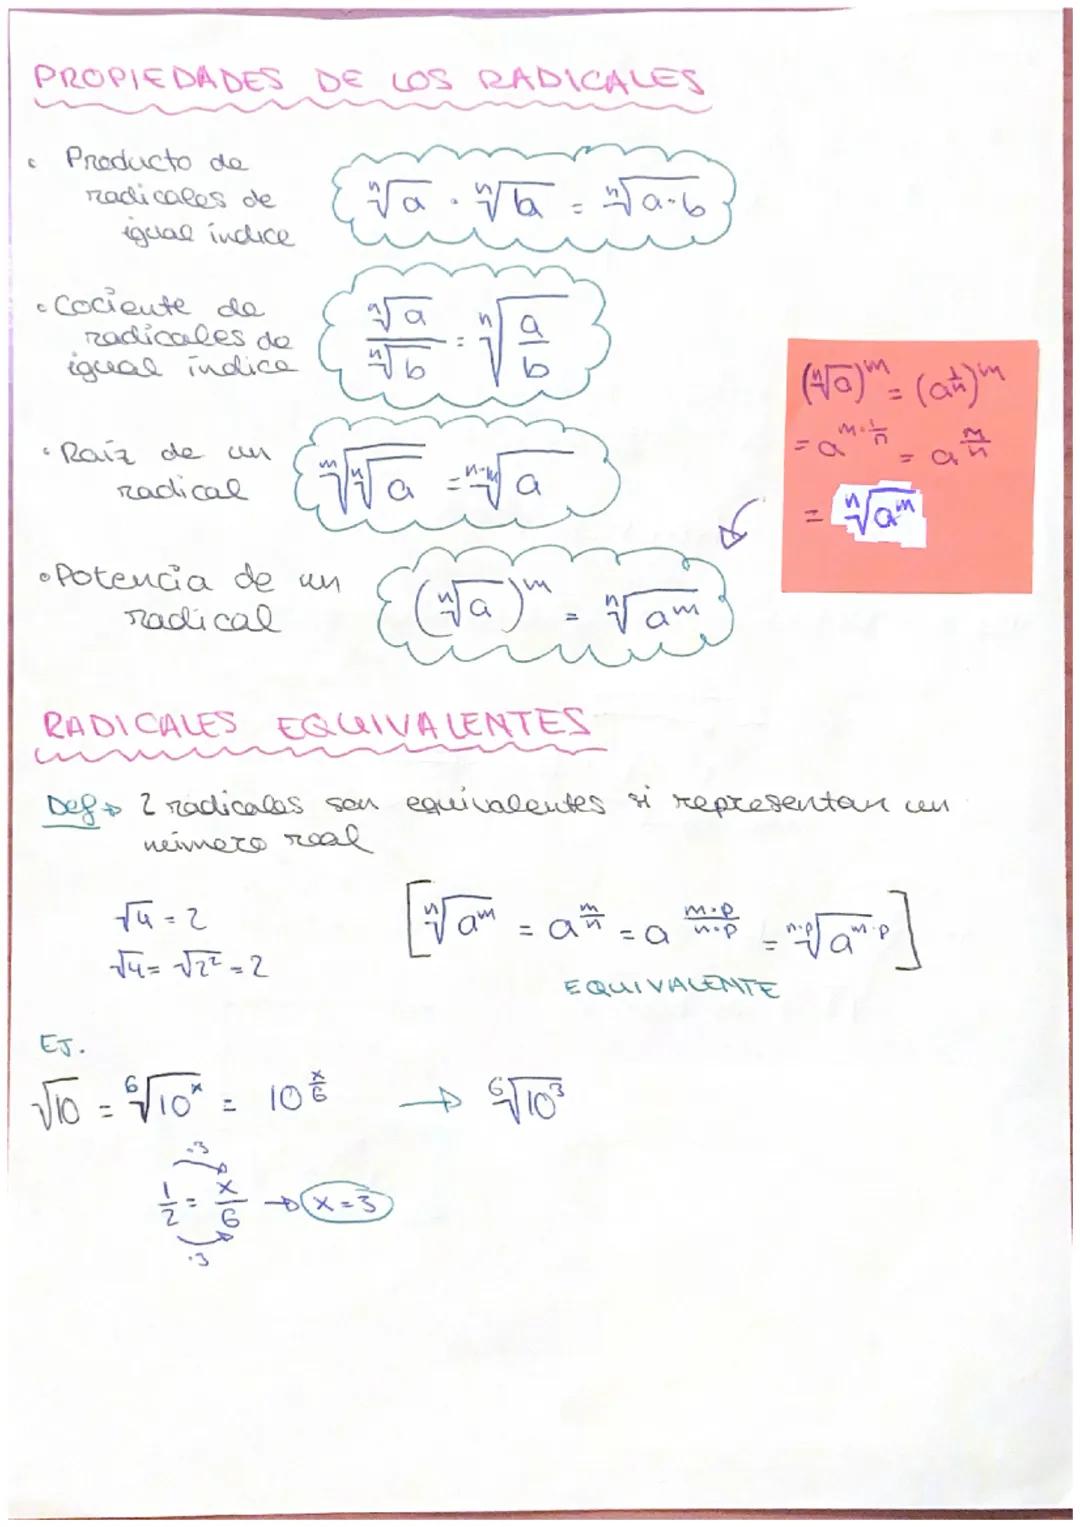 PROPIEDADES DE LOS RADICALES
• Producto de
radicales de
igual índice
ⁿ√a · ⁿ√b = ⁿ√a·b
• Cociente de
radicales de
igual índice
ⁿ√a / ⁿ√b = ⁿ√(a/b)
(ⁿ√a)^m = (a^(1/n))^m
= a^(m·1/n) = a^(m/n)
= ⁿ√a^m
• Raíz de un
radical
ᵐ√ⁿ√a = ⁿ·ᵐ√a
• Potencia de un
radical
(ⁿ√a)^m = ⁿ√a^m
RADICALES EQUIVALENTES
Def → 2 radicales son equivalentes si representan un
número real
√4 = 2
√4 = √2² = 2
[ⁿ√a^m = a^(m/n) = a^(m·p/n·p) = ⁿ·ᵖ√a^(m·p)]
EQUIVALENTE
EJ.
√10 = ⁶√10^x = 10^(x/6) → ⁶√10³
·3
1/2 = x/6 → x = 3
·3